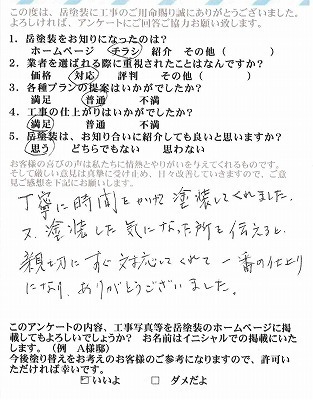 この度は、岳塗装に工事のご用命賜り誠にありがとうございました。
よろしければ、アンケートにご回答ご協力お願い致します。
1. 岳塗装をお知りになったのは?
ホームページ チラシ 紹介 その他 ( )
2. 業者を選ばれる際に重視されたことはなんですか?
価格 対応 評判 その他 ( )
3. 各種プランの提案はいかがでしたか?
満足 普通 不満
4. 工事の仕上がりはいかがでしたか?
満足 普通 不満
5. 岳塗装は、お知り合いに紹介しても良いと思いますか?
思う どちらでもない 思わない
お客様の喜びの声は私たちに情熱とやりがいを与えてくれるものです。
そして厳しい意見は真摯に受け止め、日々改善していきますので、ご意
見ご感想を下記にお願いします。
丁寧に時間をかけて塗装してくれました。
又、塗装した気になった所を伝えると、
親切にすぐ対応してくれて一番の仕上り
になり、ありがとうございました。
このアンケートの内容、工事写真等を岳塗装のホームページに掲
載してもよろしいでしょうか? お名前はイニシャルでの掲載にいた
します。(例 A様邸)
今後塗り替えをお考えのお客様のご参考になりますので、許可い
ただければ幸いです。
いいよ □ ダメだよ